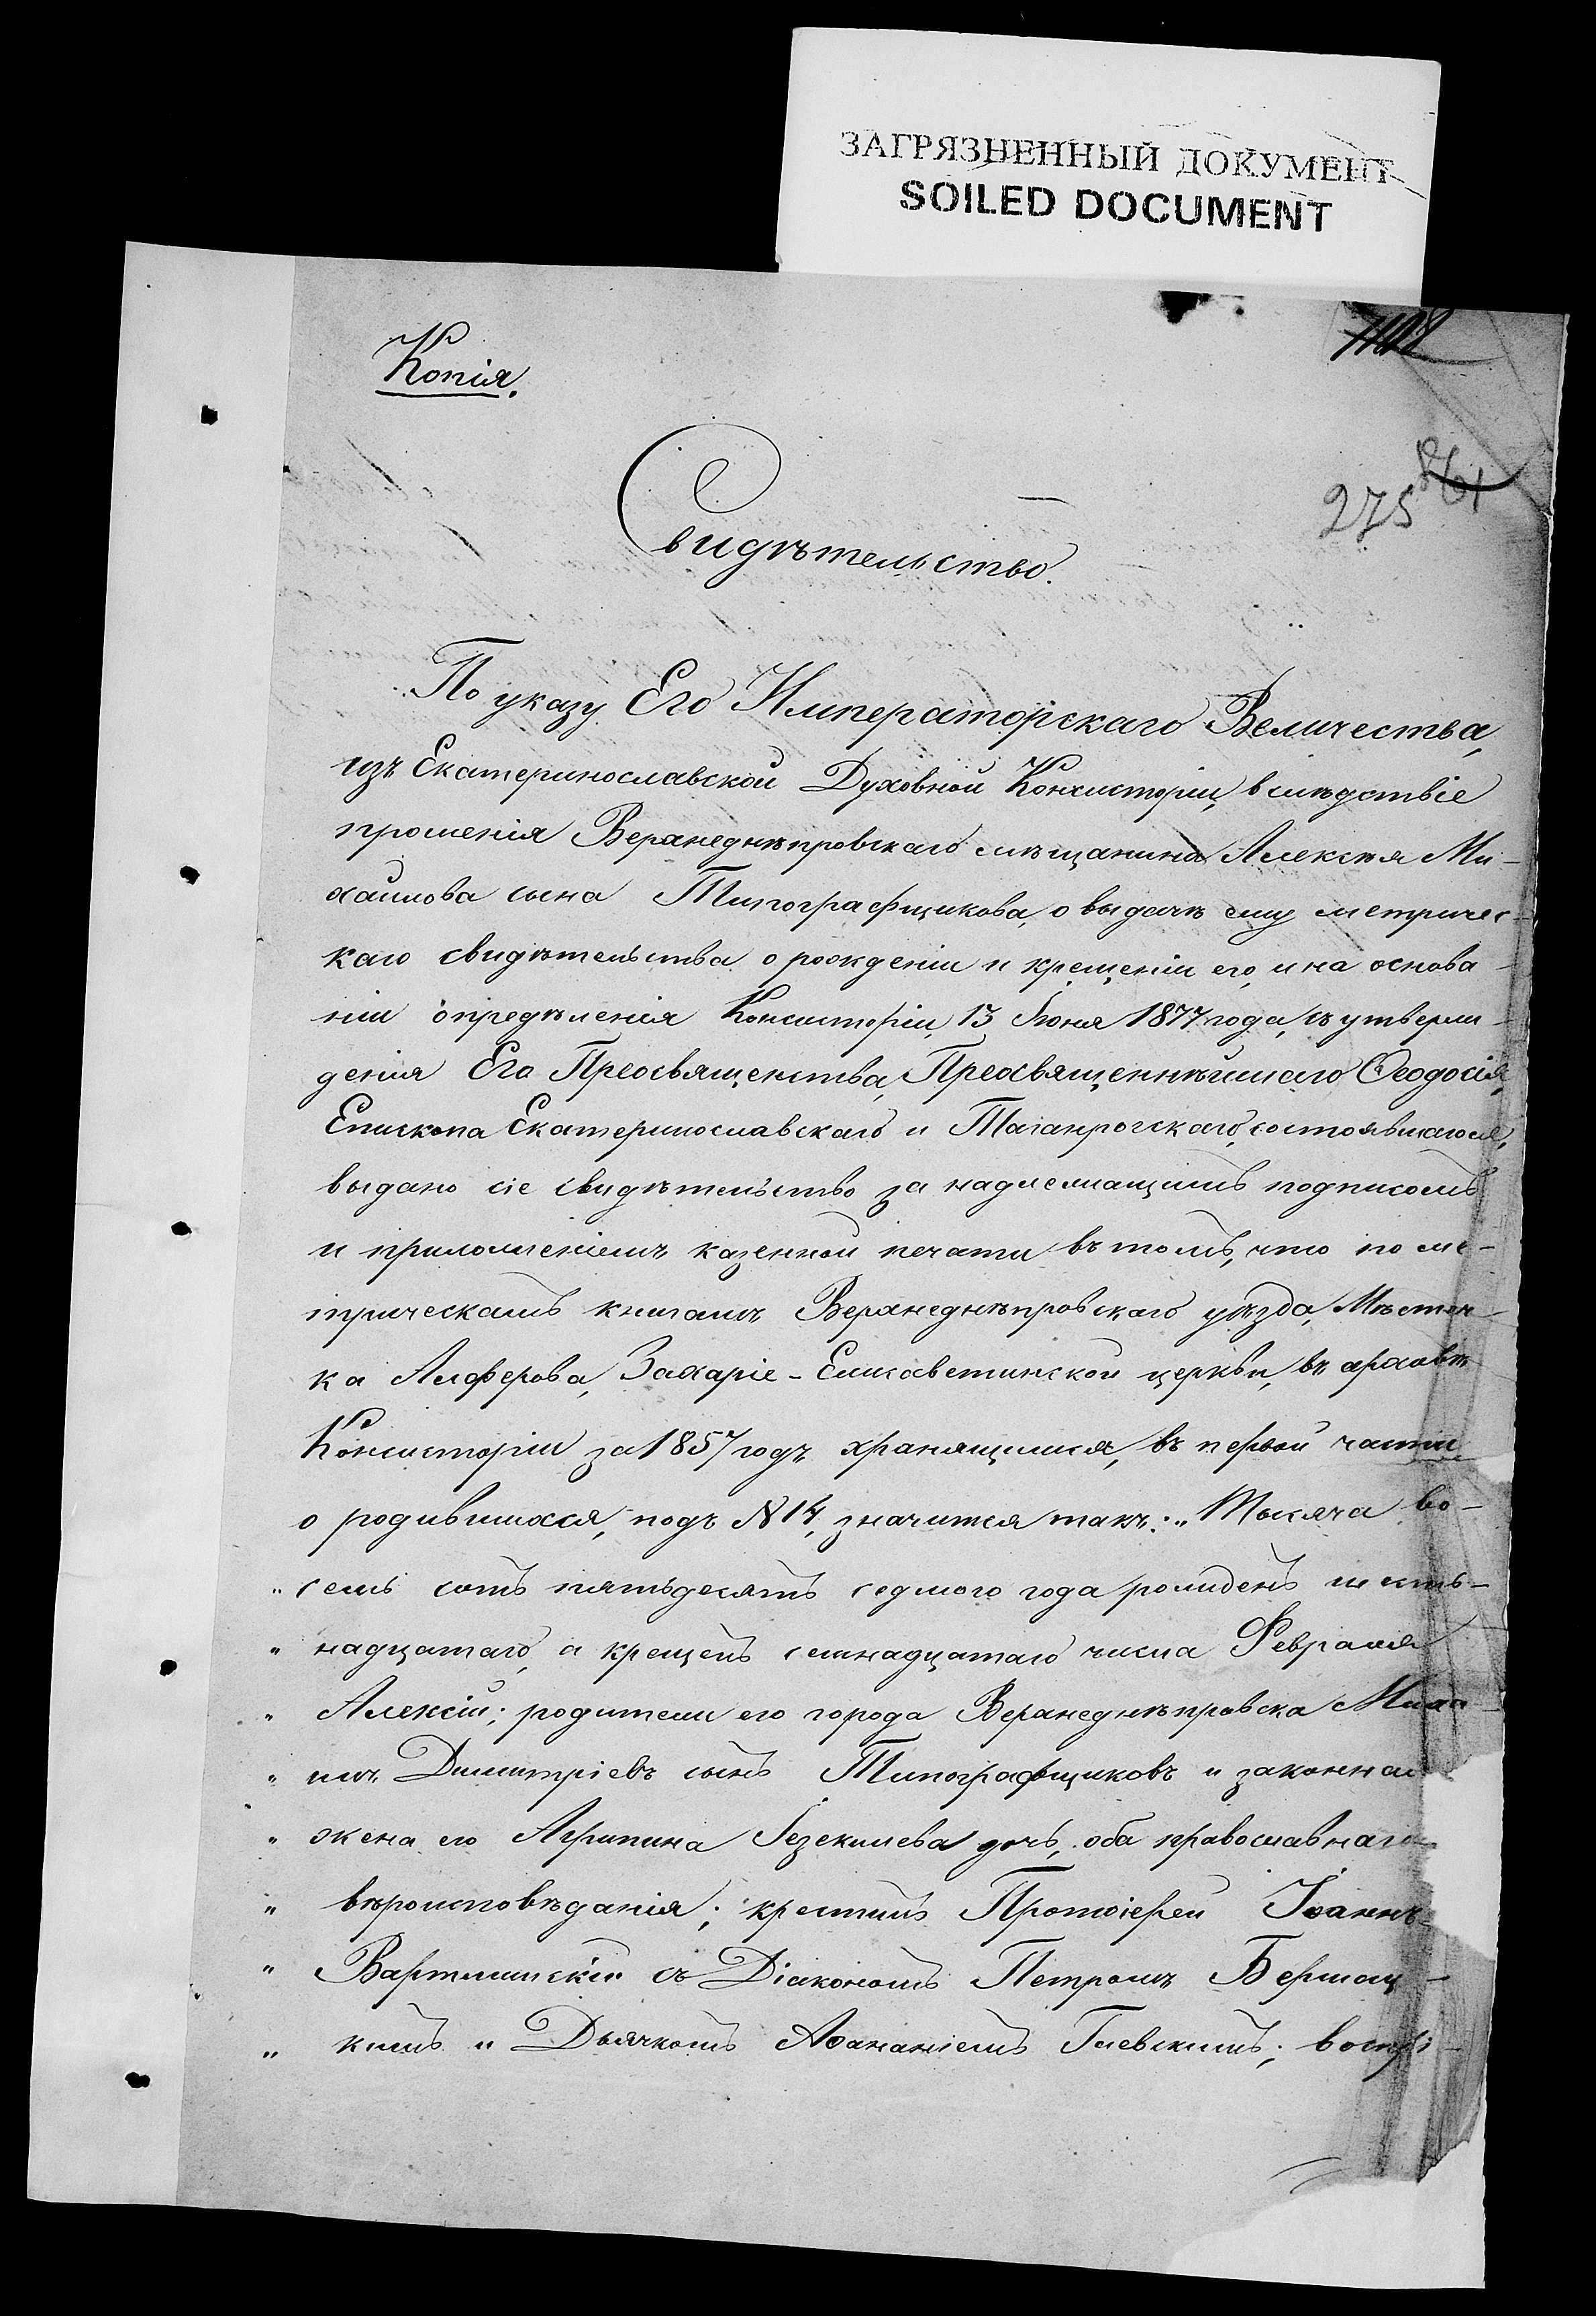 ЗАГРЯЗНЕННЫЙ ДОКУМЕНТ
SOILED DOCUMENT
Копія.
275
Свидѣтельство.
По указу Его Императорскаго Величества,
изъ Екатеринославской Духовной Консисторіи, вслѣдствіе
прошенія Верхнеднѣпровскаго мѣщанина Алексѣя Ми-
хайлова сына Типографщикова, о выдачѣ ему метричес-
каго свидѣтельства о рожденіи и крещеніи его, и на основа-
ніи опредѣленія Консисторіи, 13 Іюня 1877 года, съ утверж-
денія Его Преосвященства, Преосвященнѣйшаго Ѳеодосія,
Епископа Екатеринославскаго и Таганрогскаго, состоявшагося,
выдано сіе свидѣтельство за надлежащимъ подписомъ
и приложеніемъ казенной печати въ томъ, что по ме-
трическимъ книгамъ Верхнеднѣпровскаго уѣзда, Мѣстеч-
ка Алферова, Захаріе-Елисаветинской церкви, въ архивѣ
Консисторіи за 1857 годъ хранящимся, въ первой части
о родившихся, подъ № 14, значится такъ: „Тысяча во-
„ семь сотъ пятьдесятъ седмого года рожденъ шесть-
„ надцатаго, а крещенъ семнадцатаго числа Февраля
„ Алексій; родители его города Верхнеднѣпровска Миха-
„ илъ Димитріевъ сынъ Типографщиковъ и законная
„ жена его Агрипина Іезекилева дочь, оба православнаго
„ вѣроисповѣданія; крестилъ Протоіерей Іоаннъ
„ Вартминскій съ Діакономъ Петромъ
„ кимъ и Дьячкомъ Аѳанасіемъ Гиевскимъ; воспрі-